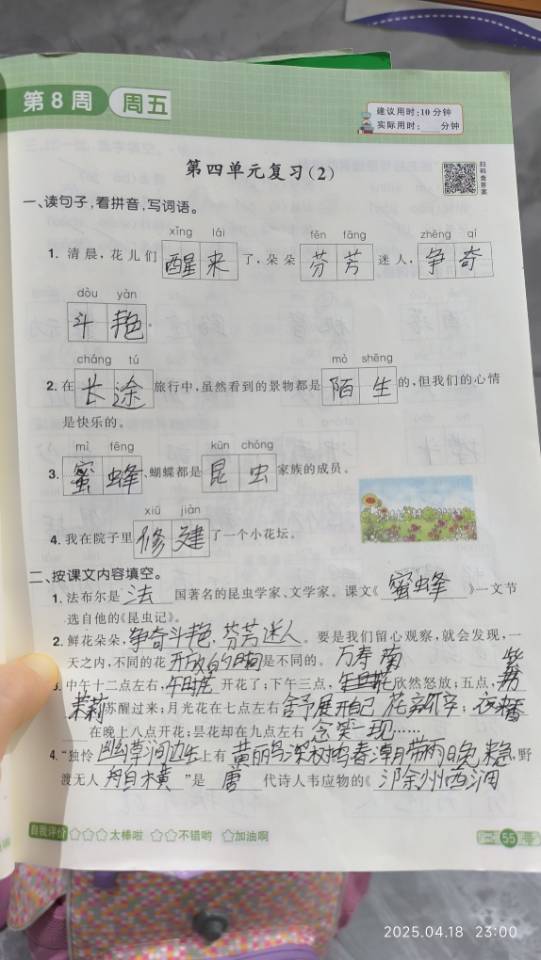 第8周 周五
建议用时:10分钟
实际用时:____分钟
第四单元复习(2)
扫码查答案
一、读句子,看拼音,写词语。
xǐng lái fēn fāng zhēng qí
1. 清晨,花儿们 醒来 了,朵朵 芬芳 迷人,争奇
dòu yàn
斗艳。
cháng tú mò shēng
2. 在 长途 旅行中,虽然看到的景物都是 陌生 的,但我们的心情
是快乐的。
mì fēng kūn chóng
3. 蜜蜂,蝴蝶都是 昆虫 家族的成员。
xiū jiàn
4. 我在院子里 修建 了一个小花坛。
二、按课文内容填空。
1. 法布尔是 法 国著名的昆虫学家、文学家。课文《 蜜蜂 》一文节
选自他的《昆虫记》。
2. 鲜花朵朵,争奇斗艳,芬芳迷人。要是我们留心观察,就会发现,一
天之内,不同的花 开放的时间 是不同的。
万寿菊
3. 中午十二点左右,午时花 开花了;下午三点,欣然怒放;五点,
茉莉 苏醒过来;月光花在七点左右 舒展开自己 花 ; 夜来香
在晚上八点开花;昙花却在九点左右 含笑一现……
4. “独怜 幽草涧边生 上有 黄鹂深树鸣 春潮 带雨晚来急,野
渡无人 舟自横 ”是 唐 代诗人韦应物的《 州西涧
自我评价 ☆☆☆太棒啦 ☆☆不错哟 ☆加油啊
55
2025.04.18 23:00